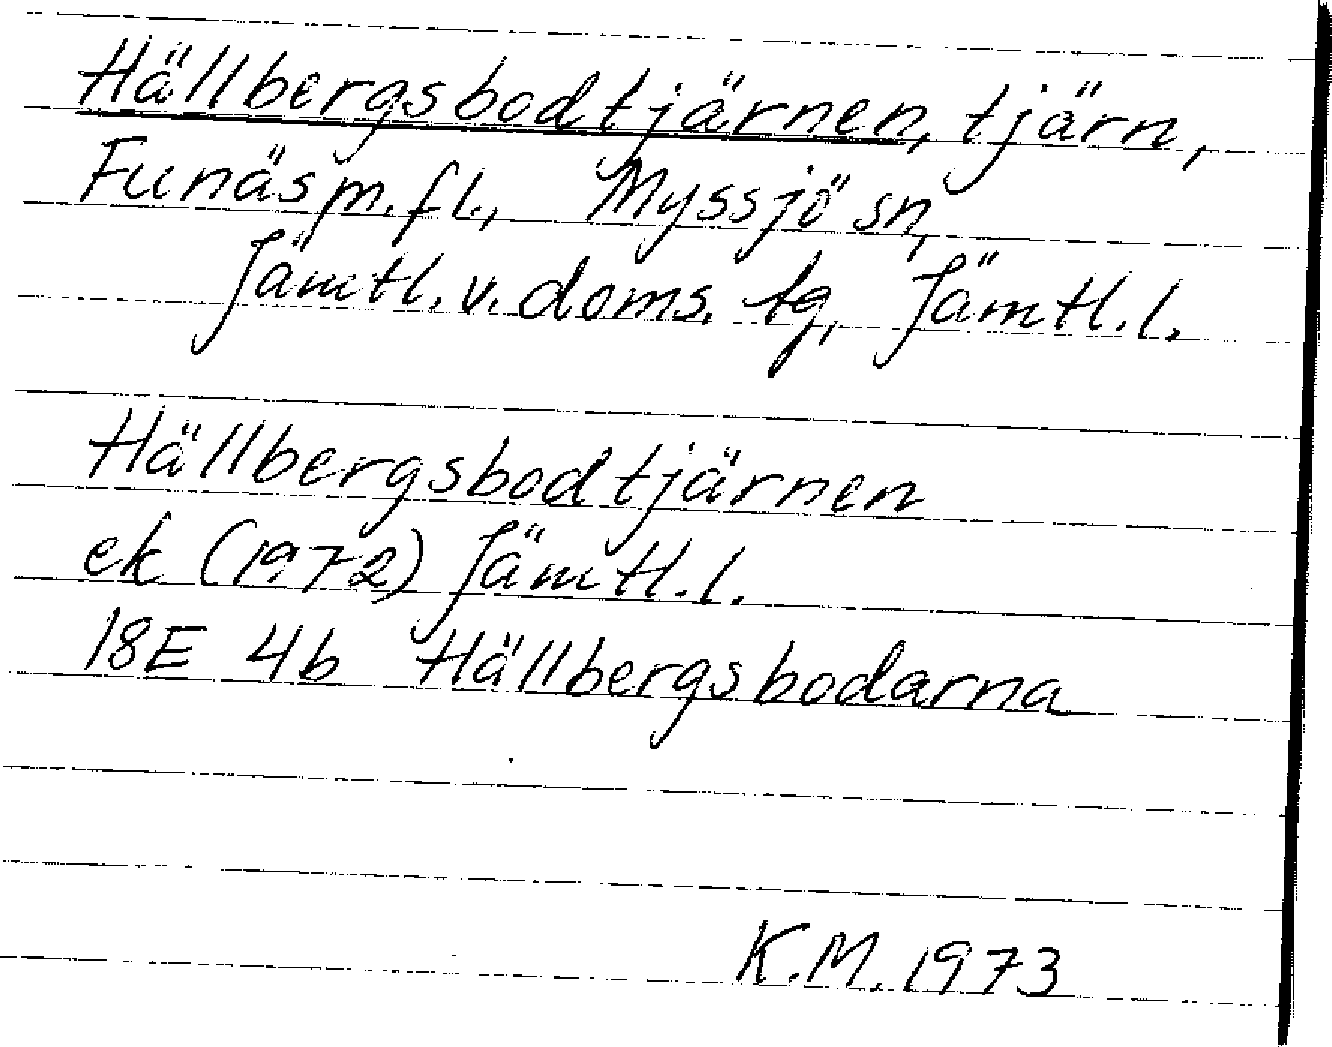 Hällbergsbodtjärnen, tjärn,
Funäs m.fl., Myssjö sn,
Jämtl. v. doms. tg, Jämtl. l.
Hällbergsbodtjärnen
ek (1972) Jämtl. l.
18E 4b Hällbergsbodarna
K.M. 1973